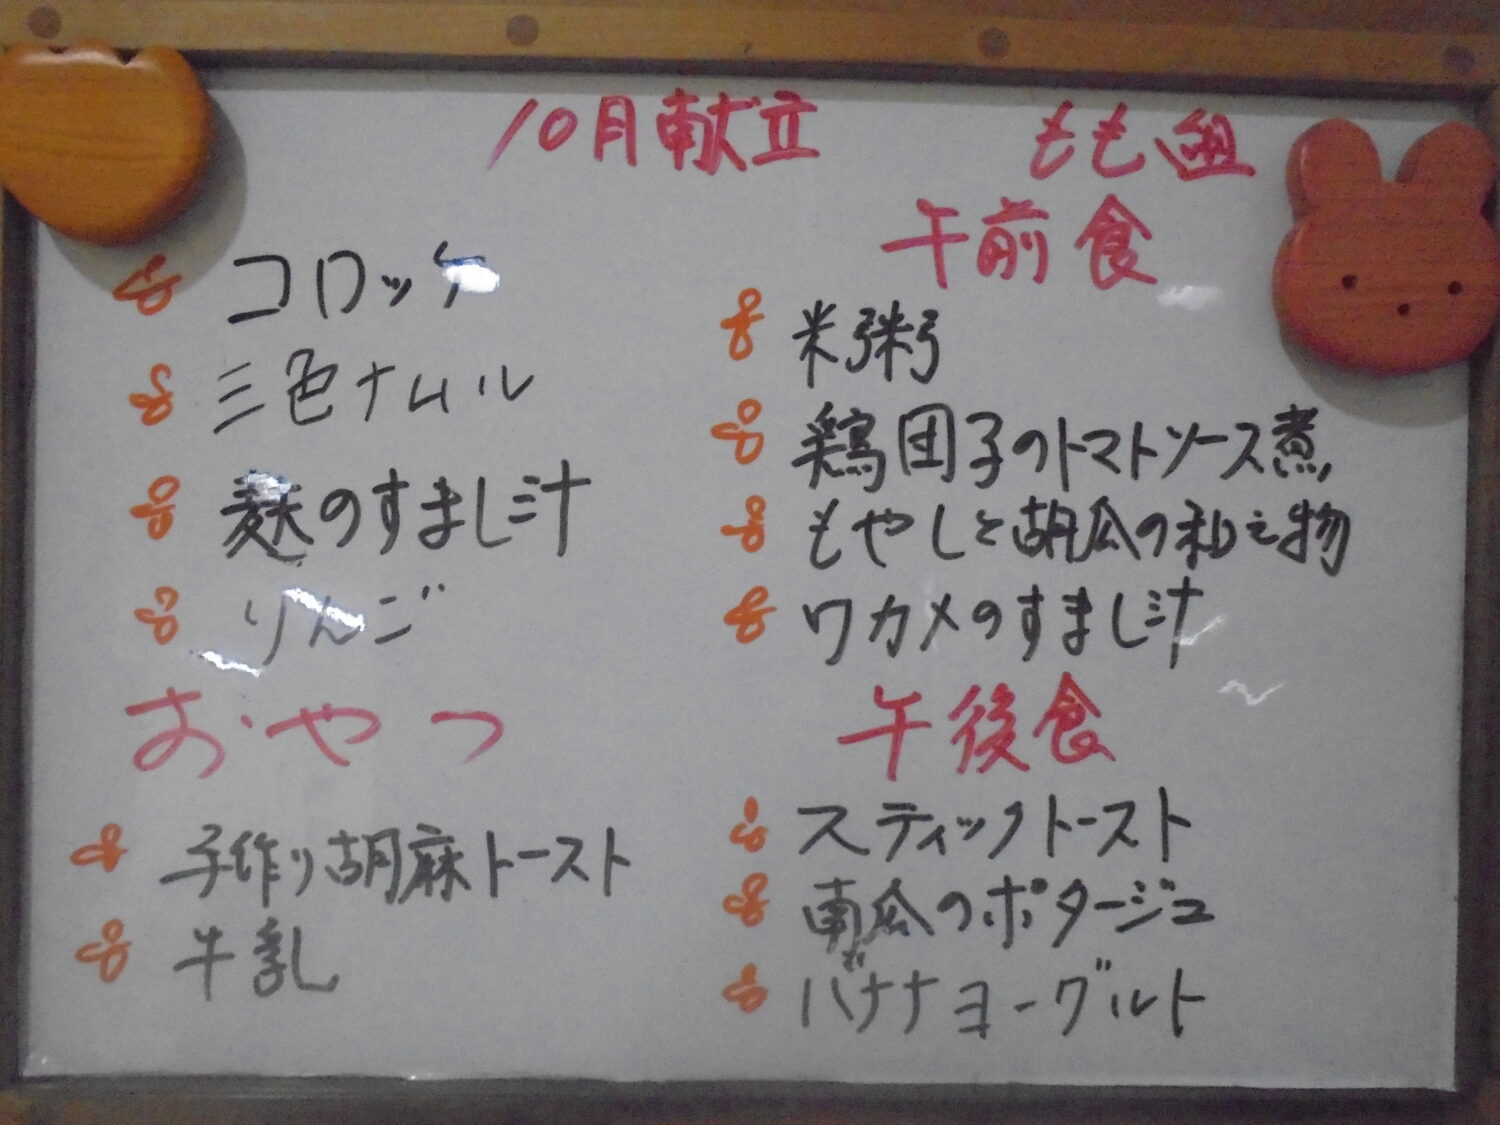 10月献立
コロッケ
三色ナムル
麩のすまし汁
りんご
おやつ
手作り胡麻トースト
牛乳
もも組
午前食
米粥
鶏団子のトマトソース煮
もやしと胡瓜の和え物
ワカメのすまし汁
午後食
スティックトースト
南瓜のポタージュ
バナナヨーグルト